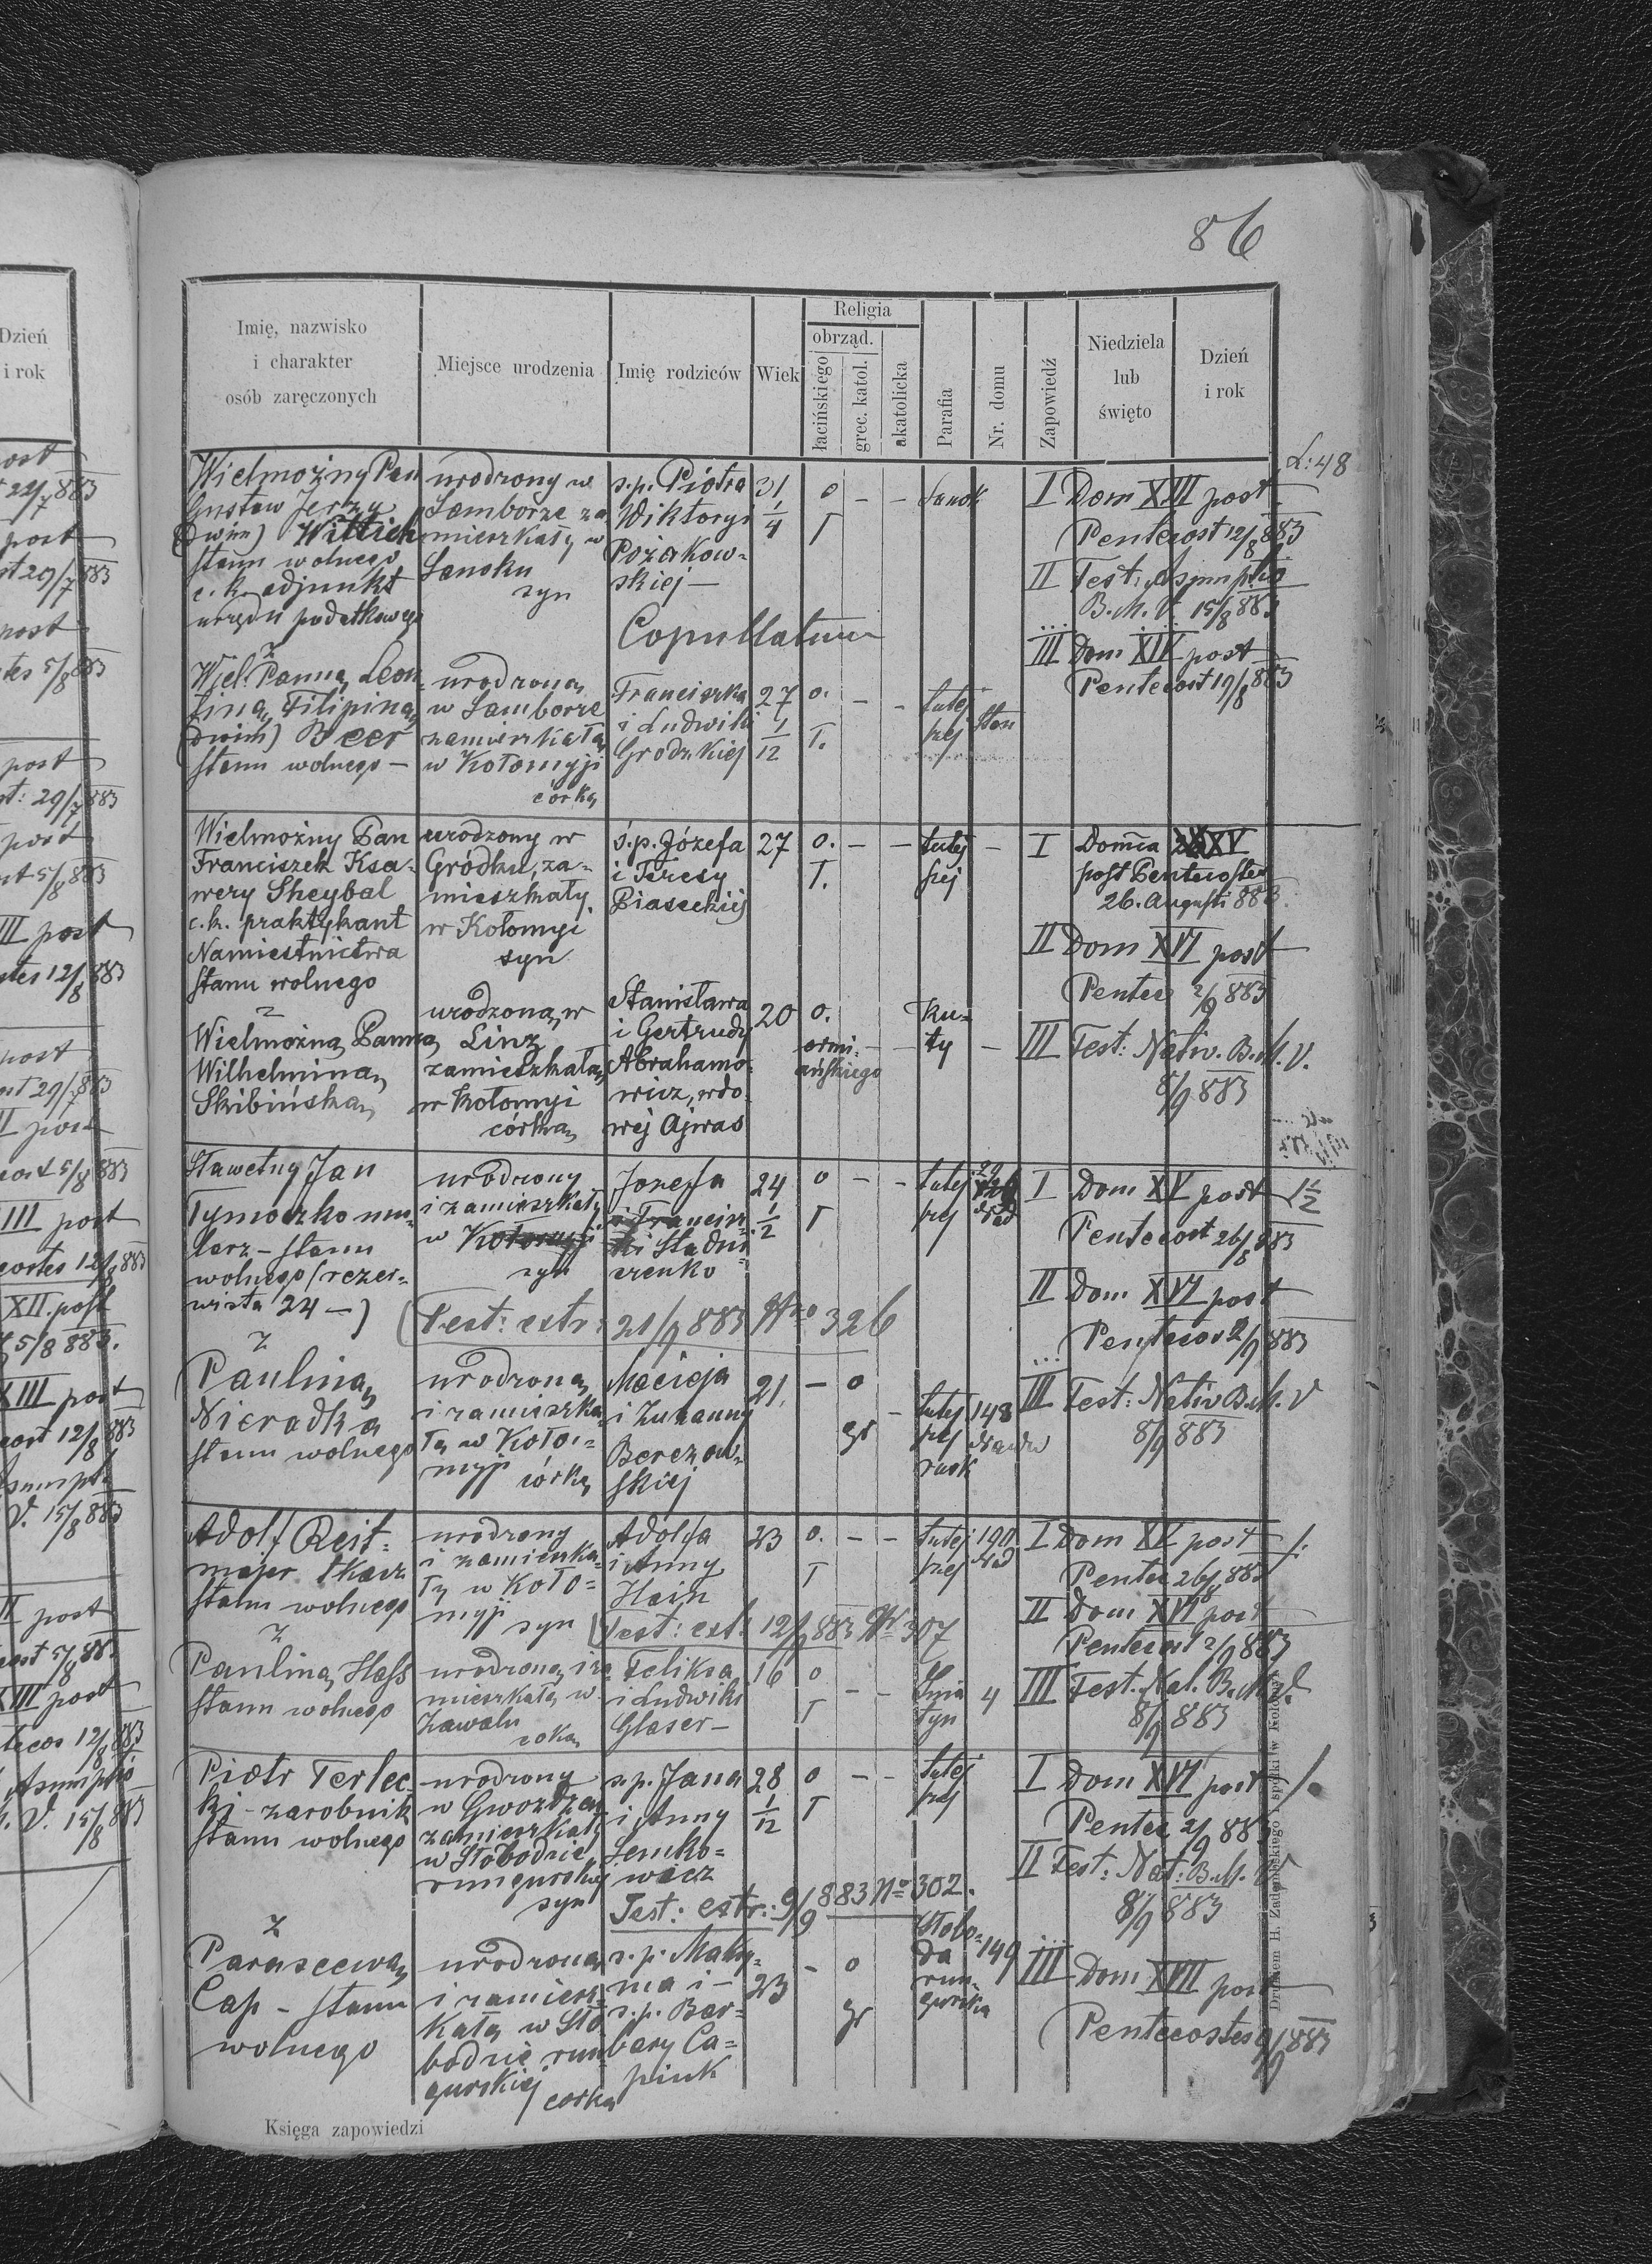 86
Imię, nazwisko
i charakter
osób zaręczonych
Miejsce urodzenia
Imię rodziców
Wiek
Religia
obrząd.
łacińskiego
grec. katol.
akatolicka
Parafia
Nr. domu
Zapowiedź
Niedziela
lub
święto
Dzień
i rok
L: 48
Wielmożny Pan
Gustaw Jerzy
(dwim) Wittich
stanu wolnego
c. k. adjunkt
urzędu podatkowego
urodzony w
Samborze za
mieszkały w
Sanoku
syn
s.p. Piotra
Wiktoryi
Pożakow-
skiej —
31
1/4
o
T
— —
Sanok
I Dom XIII post
Pentecost 12/8 883
II Fest: Asumptio
B. M. V. 15/8 883
III Dom XIV post
Pentecost 19/8 883
Copullatum
z
Wiel. Panną Leon-
tiną Filipiną
(dwim) Beer
stanu wolnego —
urodzoną
w Samborze
zamieszkałą
w Kołomyji
córką
Franciszka
i Ludwiki
Grodzkiej
27
1/12
o.
T.
— —
tutej
szej
Wielmożny Pan
Franciszek Ksa-
wery Sheybal
c.k. praktykant
Namiestnictwa
stanu wolnego
urodzony w
Gródku, za-
mieszkały
w Kołomyi
syn
ś.p. Józefa
i Teresy
Piaseckiej
27
o.
T.
— —
tutej
szej
—
I Domca XV
post Pentecosten
26. Augusti 883.
II Dom XVI post
Pentec 2/9 883
III Fest: Nativ. B. M. V.
8/9 883
z
Wielmożną Panną
Wilhelminą
Skibińską
urodzoną w
Linz
zamieszkałą
w Kołomyi
córką
Stanisława
i Gertrudy
Abrahamo-
wicz, wdo-
wej Ajwas
20
o.
ormi-
ańskiego
— —
Ku-
ty
—
Sławetny Jan
Tymoczko mu-
larz – stanu
wolnego (rezer-
wista 24 —)
urodzony
i zamieszkały
w Kołomyji
syn
Jozefa
i Francisz-
ki Stadni
czenko
24
1/2
o
T
— —
tutej
szej
I Dom XV post
Pentecost 26/8 883
II Dom XVI post
Pentecos 2/9 883
III Fest: Nativ B. M. V
8/9 883
(Test: extr: 21/9 883 Nro 326
z
Pauliną
Nieradką
stanu wolnego
urodzoną
i zamieszka-
łą w Koło-
myji córką
Macieja
i Zuzanny
Berezow-
skiej
21.
— o
gr
—
tutej
szej
rusk
148
Adolf Reit-
majer tkacz
stanu wolnego
urodzony
i zamieszka-
ły w Koło-
myji
syn
Adolfa
i Anny
Hein
23
o.
T
— —
tutej
szej
190
I Dom XV post
Pentec 26/8 883
II Dom XVI post
Pentecost 2/9 883
III Fest. Nat. B. M. V.
8/9 883
(Test: ext: 12/9 883 No 307
z
Pauliną Hass
stanu wolnego
urodzoną i za
mieszkałą w
Zawalu
Feliksa
i Ludwiki
Glaser —
16
o
T
— —
Śnia
tyn
4
Piotr Terlec-
ki – zarobnik
stanu wolnego
urodzony
w Gwozdzcu
zamieszkały
w Słobodzie
rungurskiej
syn
s.p. Jana
i Anny
Semko-
wicz
28
1/12
o
T
— —
tutej
szej
I Dom XVI post
Pentec 2/9 883
II Fest: Nat: B. M. V
8/9 883
III Dom XVII post
Pentecostes 9/9 883
Test: extr: 9/9 883 No 302.
z
Parascewą
Cap – stanu
wolnego
urodzoną
i zamiesz-
kałą w Sło
bodzie run
gurskiej
corką
s.p. Maksy-
ma i —
s.p. Bar-
bary Ca-
piuk
23
— o
gr
Słobo-
da
run-
gurska
149
Księga zapowiedzi
Drukiem H. Zadembskiego i spółki w Kołomyi
Dzień
i rok